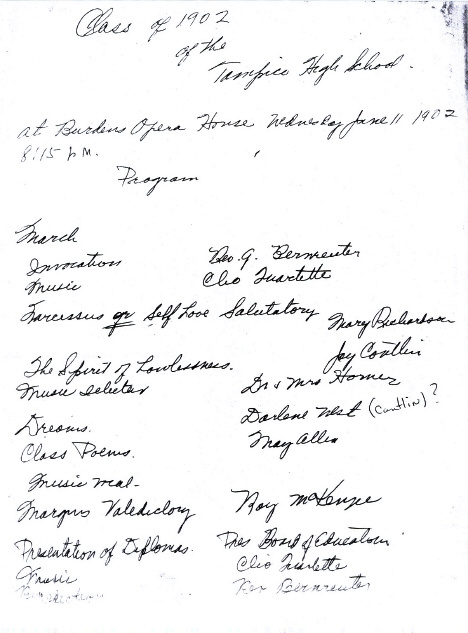 Class of 1902
of the
Tampico High School.
at Burdens Opera House Wednesday June 11 1902
8:15 PM.
Program
March
Invocation Geo. G. Bermreuter
Music Clio Quartette
Narcissus or Self Love Salutatory Mary Richardson
The Spirit of Lowlessness. Jay Conlin
Music Dr & Mrs Horner
Dreams. Darlene West (Cantlin)?
Class Poems. May Allen
Music
Valedictory Roy McKenzie
Presentation of Diplomas. Pres Board of Education
Music Clio Quartette
Bermreuter